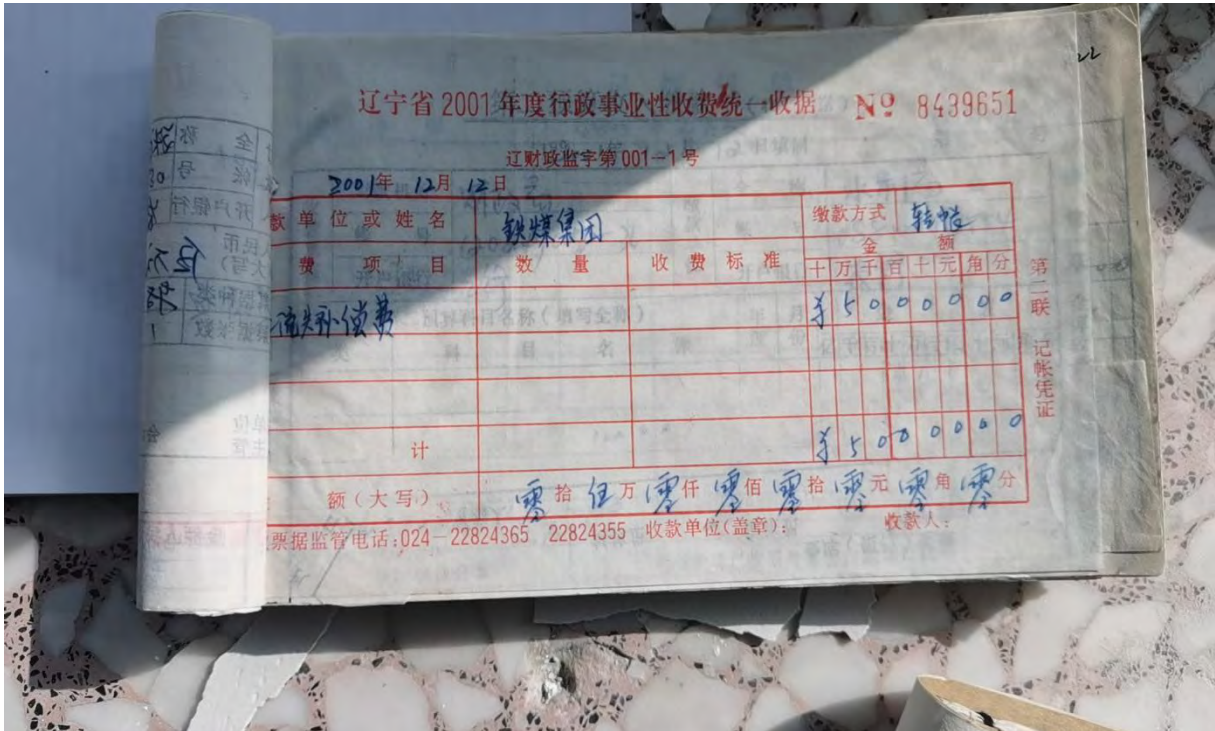 22
辽宁省2001年度行政事业性收费统一收据 № 8439651
辽财政监字第001—1号
2001年 12月 12日
款单位或姓名 铁煤集团 缴款方式 转帐
费 项 目 数 量 收 费 标 准 金 额
十 万 千 百 十 元 角 分
流失补偿费 ¥5000000
计 ¥5000000
额(大写) 零拾伍万零仟零佰零拾零元零角零分
票据监管电话:024—22824365 22824355 收款单位(盖章): 收款人:
第二联 记帐凭证
全 称
帐 号
开户银行